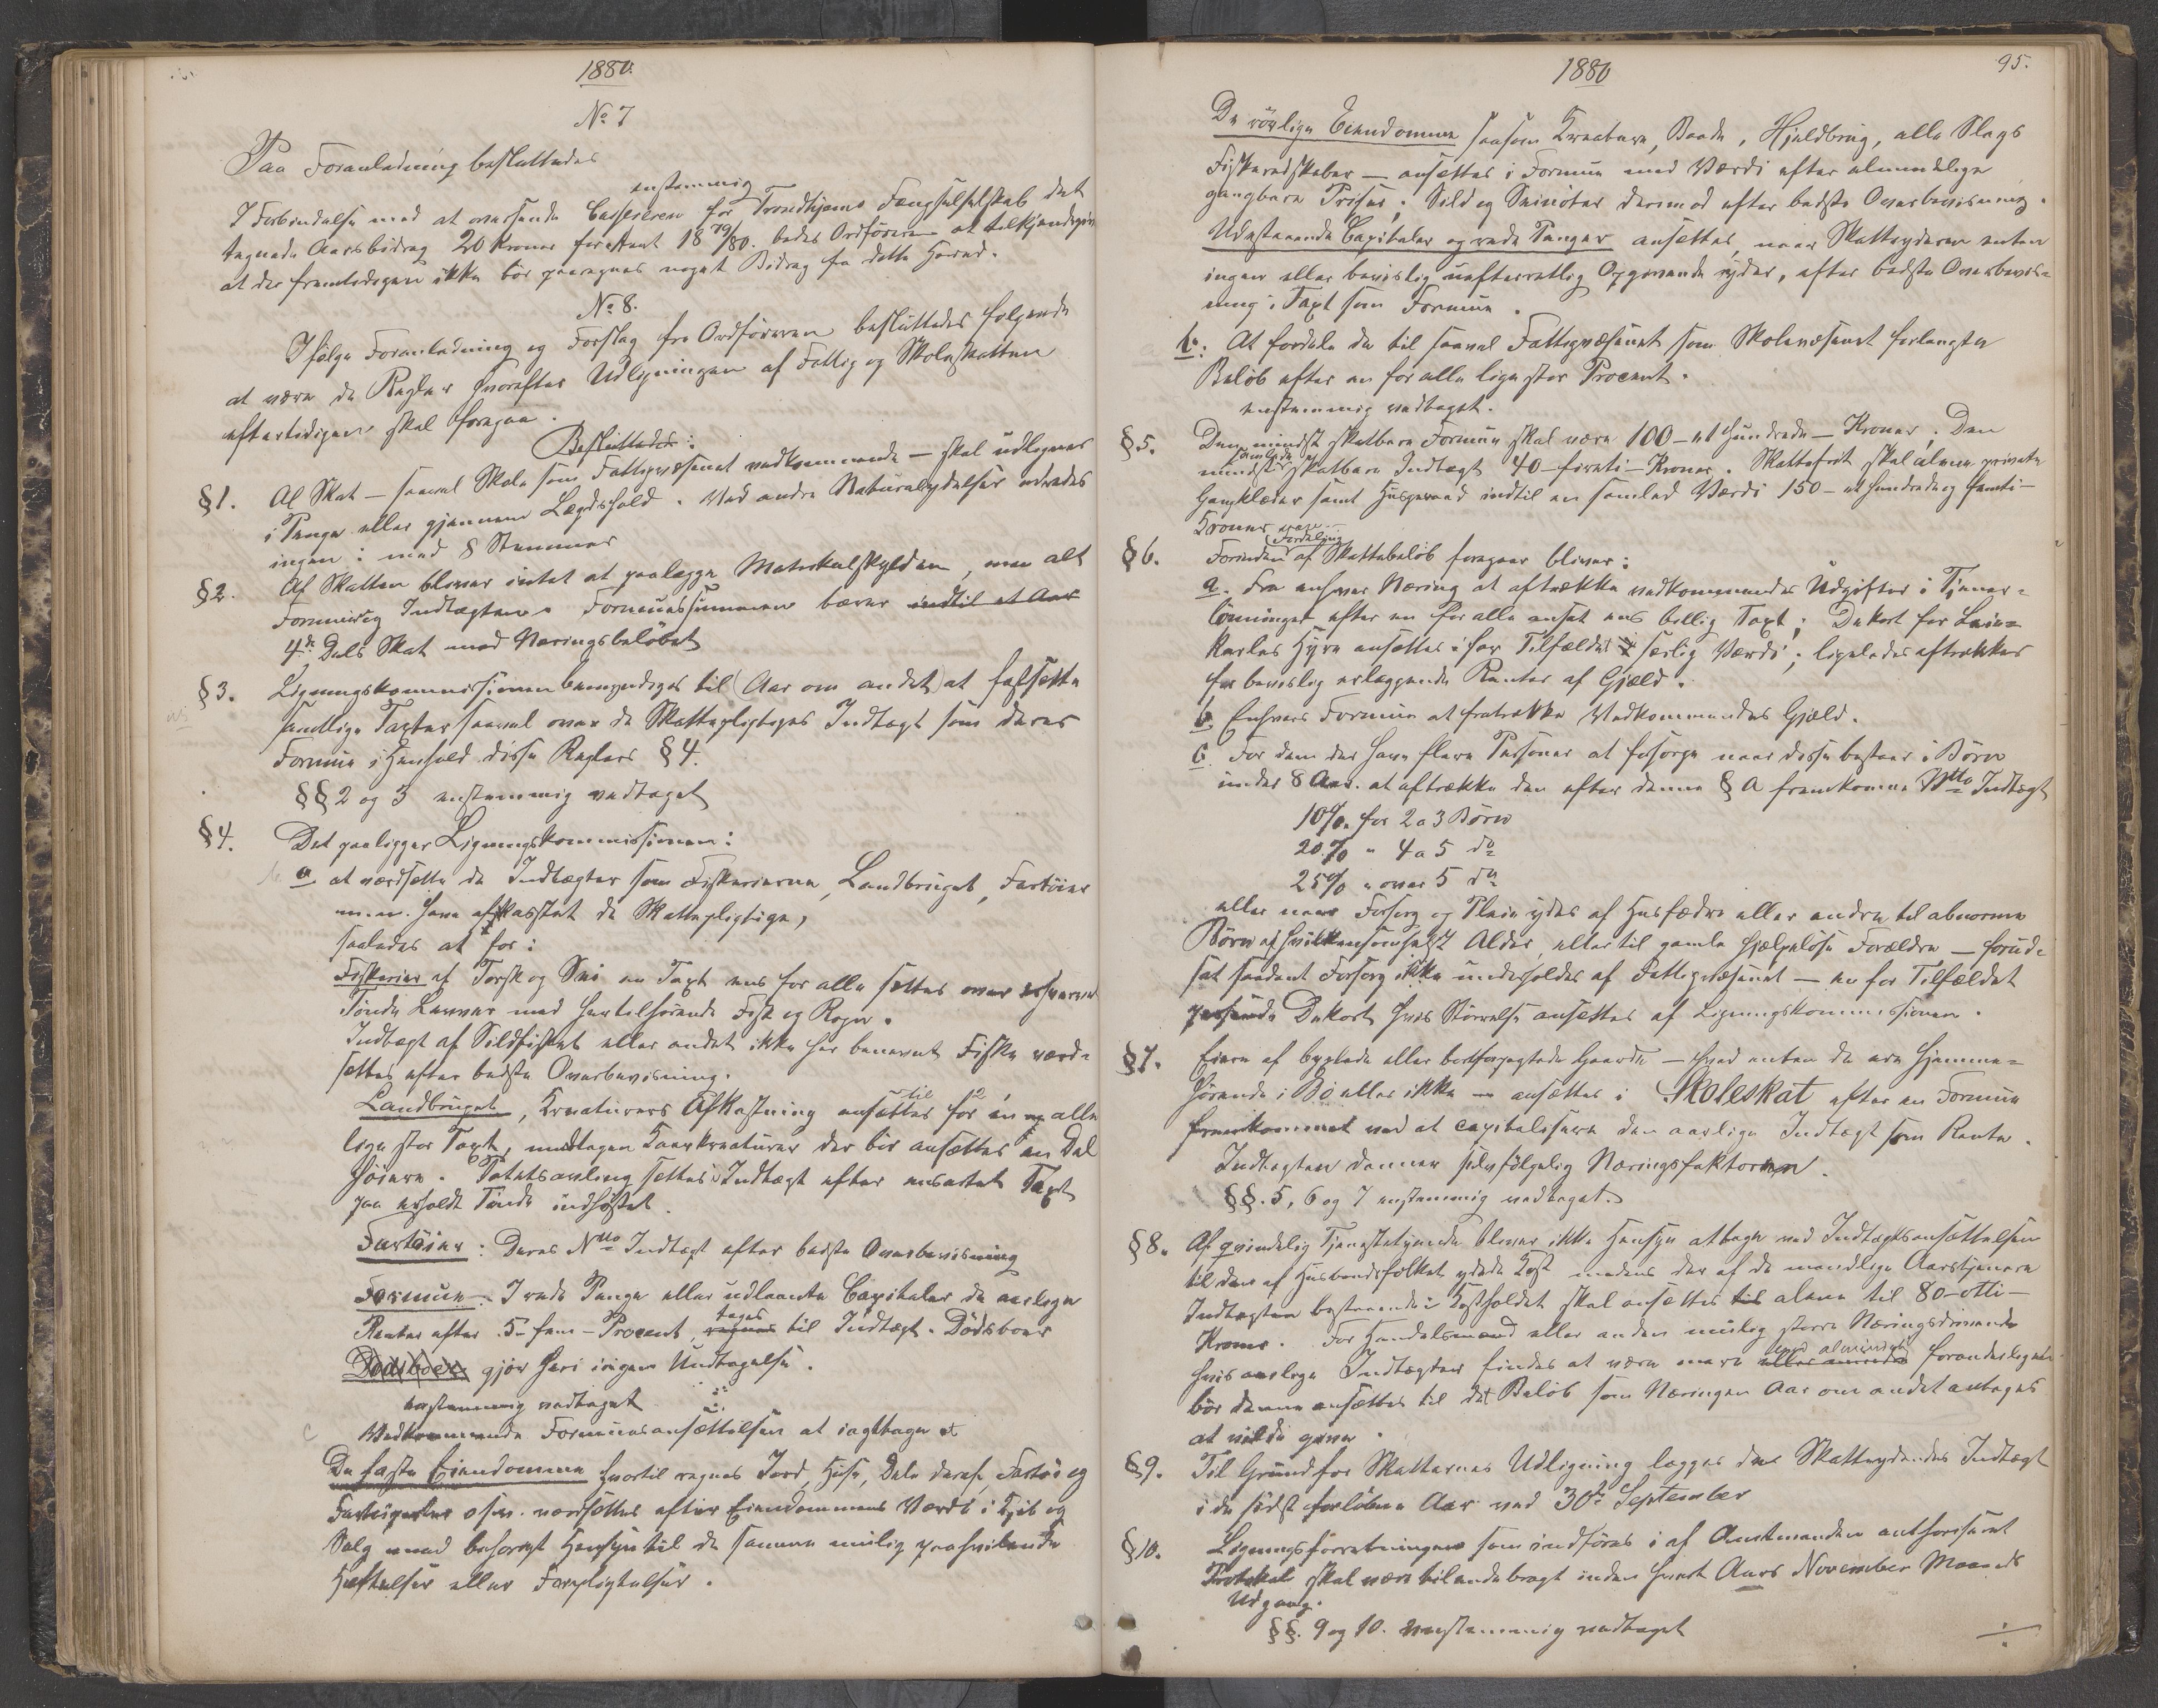 1880.
No 7
Paa Foranledning besluttedes
enstemmig
I Forbindelse med at oversende Cassereren for Trondhjems Fængselselskab det
tegnede Aarsbidrag 20 Kroner for 18 79/80. bedes Ordføreren at tilkjendegive
at der fremtidigen ikke bør paaregnes noget Bidrag fra dette Herred.
No 8.
Ifølge Foranledning og Forslag fra Ordføreren besluttedes følgende
at være de Regler hvorefter Udligningen af Fattig og Skoleskatten
eftertidigen skal foregaa.
Besluttedes:
§1. Al Skat – saavel Skole som Fattigvæsenet vedkommende – skal udlignes
i Penge eller gjennem Lægdshold. Ved andre Naturalydelser udredes
ingen: med 8 Stemmer
§2. Af Skatten bliver intet at paalægge Matrikulskylden, men alt
Formue og Indtægten. Formuessummen bærer indtil et Aar
4de Dels Skat mod Næringsbeløbet
§3. Ligningskommissionen bemyndiges til (Aar om andet) at fastsette
samtlige Taxter saavel over de Skattepligtiges Indtægt som deres
Formue i Henhold disse Reglers §4.
§§ 2 og 3 enstemmig vedtaget
§4. Det paaligger Ligningskommissionen:
a at værdsette de Indtægter som Fiskerierne, Landbruget, Fartøier
m.m. have afkastet de Skattepligtige,
saaledes at for:
Fiskerier af Torsk og Sei en Taxt ens for alle settes over
Tønde Levver med hertilhørende Fisk og Rogn.
Indtægt af Sildfisket eller andet ikke her benevnt Fiske værd-
settes efter bedste Overbevisning.
Landbruget, Kreaturers Afkastning ansættes til for en og alle
lige stor Taxt, undtagen Kaarkreaturer der bør ansættes en Del
høiere. Potetsavling settes i Indtægt efter ensartet Taxt
paa erholdt Tønde indhøstet.
Fartøier: Deres Ntto Indtægt efter bedste Overbevisning
Formue. I rede Penge eller udlaante Capitaler de aarlige
tages
Renter efter 5 – fem – Procent, regnes til Indtægt. Dødsboer
Dødsboer gjør heri ingen Undtagelse.
enstemmig vedtaget
Vedkommende Formuesansættelsen at iagttage
De faste Eiendomme hvortil regnes Jord, Huse, Dele deraf, Fartøi og
Fartøiparter osv. værdsettes efter Eiendommens Værdi i Kjøb og
Salg med behørigt Hensyn til de samme mulig paahvilende
Heftelser eller Forpligtelser.
1880
95.
De rørlige Eiendomme saasom Kreature, Baade, Hjeldbrug, alle Slags
Fiskeredskaber – ansættes i Formue med Værdi efter almindelige
gangbare Priser; Sild og Seinøter derimod efter bedste Overbevisning.
Udestaaende Capitaler og rede Penger ansættes, naar Skatteyderen enten
ingen eller bevislig uefterretlig Opgivende yder, efter bedste Overbevis-
ning i Taxt som Formue.
b: At fordele de til saavel Fattigvæsenet som Skolevæsenet forlangte
Beløb efter en for alle lige stor Procent.
enstemmig vedtaget.
§5. Den mindst skatbare Formue skal være 100 – et Hundrede – Kroner; Den
samlede
mindst skatbare Indtægt 40 – firti – Kroner. Skattefrit skal alene private
Gangklæder samt Husgeraad indtil en samled Værdi 150 – et hundrede og femti –
Kroner være.
Fordeling
§6. Forinden af Skattebeløb foregaar bliver:
a. Fra enhver Næring at aftrække vedkommendes Udgifter i Tjener-
lønninger efter en for alle ansat ens billig Taxt; Dekort for Leie-
karles Hyre ansættes i hver Tilfælde særlig Værdi; ligeledes aftrækkes
for bevislig erlæggende Renter af Gjeld.
b. Enhvers Formue at fratrække Vedkommendes Gjæld.
c. For dem der have flere Personer at forsørge naar disse bestaar i Børn
under 8 Aar. at aftrække den efter denne § A fremkomne Ntto Indtægt
10% for 2 a 3 Børn
20% " 4 a 5 do
25% " over 5 do
eller naar Forsørg og Pleie ydes af Husfædre eller andre til abnorme
Børn af hvilkensomhelst Alder, eller til gamle hjælpeløse Forældre – forud-
sat saadant Forsørg ikke underholdes af Fattigvæsenet – en for Tilfældet
passende Dekort hvis Størrelse ansettes af Ligningskommissionen.
§7. Eiere af bygslede eller bortforpagtede Gaarde – hvad enten de ere hjemme-
hørende i Bø eller ikke – ansættes i Skoleskat efter en Formue
fremkommet ved at capitalisere den aarlige Indtægt som Rente.
Indtægten danner selvfølgelig Næringsfaktoren.
§§. 5, 6 og 7 enstemmig vedtaget.
§8. Af qvindelig Tjenestetyende bliver ikke Hensyn at tage ved Indtægtsansættelsen
til den af Husbondsfolket ydede Kost medens der af de mandlige Aarstjenere
Indtægten bestaaende i Kostholdet skal ansettes til alene til 80 – otti –
Kroner. For Handelsmænd eller anden mulig større Næringsdrivende
end almindelig
hvis aarlige Indtægter findes at være mere foranderligere
bør denne ansættes til det Beløb som Næringen Aar om andet antages
at vilde give.
§9. Til Grund for Skatternes Udligning lægges den Skatteydendes Indtægt
i de sidst forløbne Aar ved 30te September
§10. Ligningsforretningen som indføres i af Amtmanden authoriseret
Protokol skal være tilendebragt inden hvert Aars November Maaneds
Udgang.
§§. 9 og 10. enstemmig vedtaget